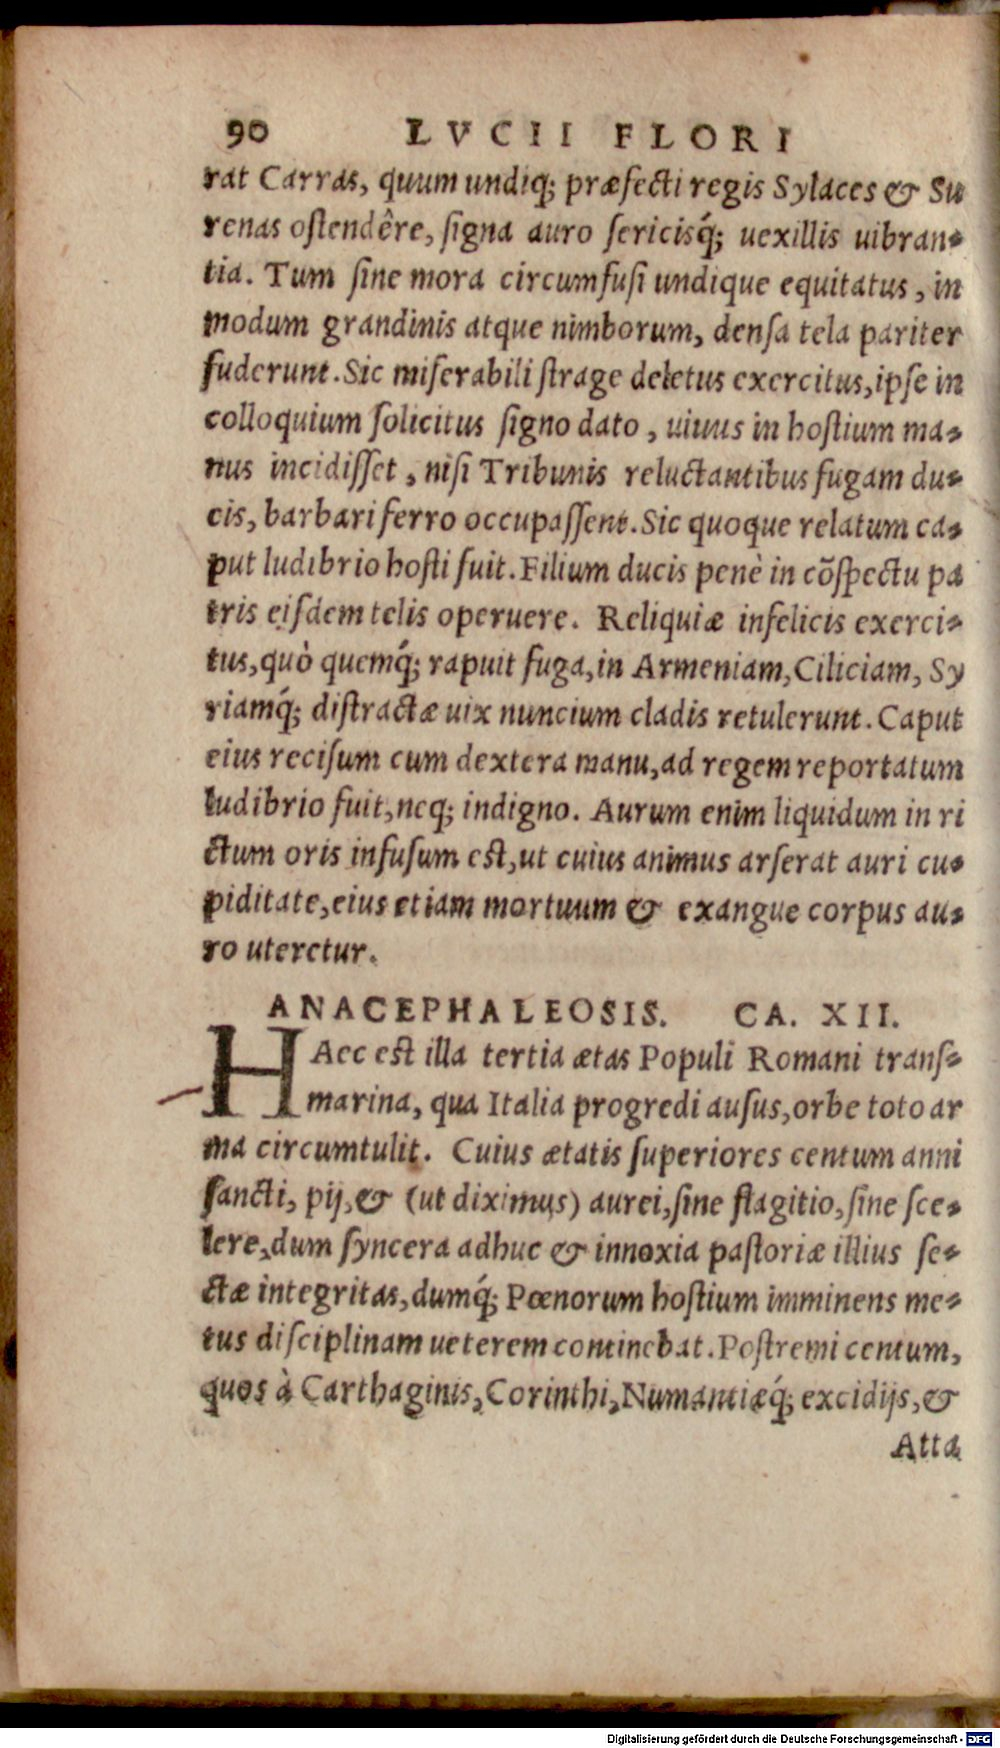 90 LVCII FLORI
rat Carras, quum undiq; præfecti regis Sylaces & Su
renas ostendêre, signa auro sericisq́; uexillis uibran-
tia. Tum sine mora circumfusi undique equitatus, in
modum grandinis atque nimborum, densa tela pariter
fuderunt. Sic miserabili strage deletus exercitus, ipse in
colloquium solicitus signo dato, uiuus in hostium ma-
nus incidisset, nisi Tribunis reluctantibus fugam du-
cis, barbari ferro occupassent. Sic quoque relatum ca-
put ludibrio hosti fuit. Filium ducis penè in cõspectu pa
tris eisdem telis operuere. Reliquiæ infelicis exerci-
tus, quò quemq́; rapuit fuga, in Armeniam, Ciliciam, Sy
riamq́; distractæ uix nuncium cladis retulerunt. Caput
eius recisum cum dextera manu, ad regem reportatum
ludibrio fuit, neq; indigno. Aurum enim liquidum in ri
ctum oris infusum est, ut cuius animus arserat auri cu-
piditate, eius etiam mortuum & exangue corpus au-
ro uteretur.
ANACEPHALEOSIS. CA. XII.
HAec est illa tertia ætas Populi Romani trans-
marina, qua Italia progredi ausus, orbe toto ar
ma circumtulit. Cuius ætatis superiores centum anni
sancti, pij, & (ut diximus) aurei, sine flagitio, sine sce-
lere, dum syncera adhuc & innoxia pastoriæ illius se-
ctæ integritas, dumq́; Pœnorum hostium imminens me-
tus disciplinam ueterem continebat. Postremi centum,
quos à Carthaginis, Corinthi, Numantiæq́; excidijs, &
Atta
Digitalisierung gefördert durch die Deutsche Forschungsgemeinschaft - DFG